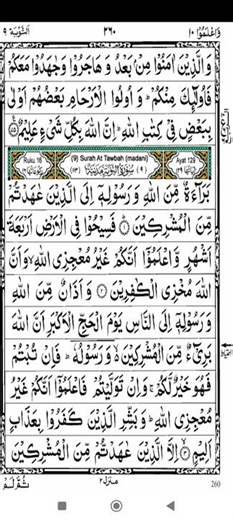 وَاعْلَمُوْۤا ١٠ ٢٦٠ اَلتَّوْبَة ٩
وَالَّذِيْنَ اٰمَنُوْا مِنْۢ بَعْدُ وَهَاجَرُوْا وَجٰهَدُوْا مَعَكُمْ
فَاُولٰٓئِكَ مِنْكُمْ ؕ وَاُولُوا الْاَرْحَامِ بَعْضُهُمْ اَوْلٰى
بِبَعْضٍ فِيْ كِتٰبِ اللّٰهِ ؕ اِنَّ اللّٰهَ بِكُلِّ شَيْءٍ عَلِيْمٌ
Ruku 16 (9) Surah At Tawbah (madani) Ayat 129
بَرَآءَةٌ مِّنَ اللّٰهِ وَرَسُوْلِهٖۤ اِلَى الَّذِيْنَ عٰهَدْتُّمْ
مِّنَ الْمُشْرِكِيْنَ ؕ فَسِيْحُوْا فِي الْاَرْضِ اَرْبَعَةَ
اَشْهُرٍ وَّاعْلَمُوْۤا اَنَّكُمْ غَيْرُ مُعْجِزِي اللّٰهِ ۙ وَاَنَّ
اللّٰهَ مُخْزِي الْكٰفِرِيْنَ وَاَذَانٌ مِّنَ اللّٰهِ
وَرَسُوْلِهٖۤ اِلَى النَّاسِ يَوْمَ الْحَجِّ الْاَكْبَرِ اَنَّ اللّٰهَ
بَرِيْٓءٌ مِّنَ الْمُشْرِكِيْنَ ۙ وَرَسُوْلُهٗ ؕ فَاِنْ تُبْتُمْ
فَهُوَ خَيْرٌ لَّكُمْ ۚ وَاِنْ تَوَلَّيْتُمْ فَاعْلَمُوْۤا اَنَّكُمْ غَيْرُ
مُعْجِزِي اللّٰهِ ؕ وَبَشِّرِ الَّذِيْنَ كَفَرُوْا بِعَذَابٍ
اَلِيْمٍ اِلَّا الَّذِيْنَ عٰهَدْتُّمْ مِّنَ الْمُشْرِكِيْنَ
ثُمَّ لَمْ منزل ٢ 260